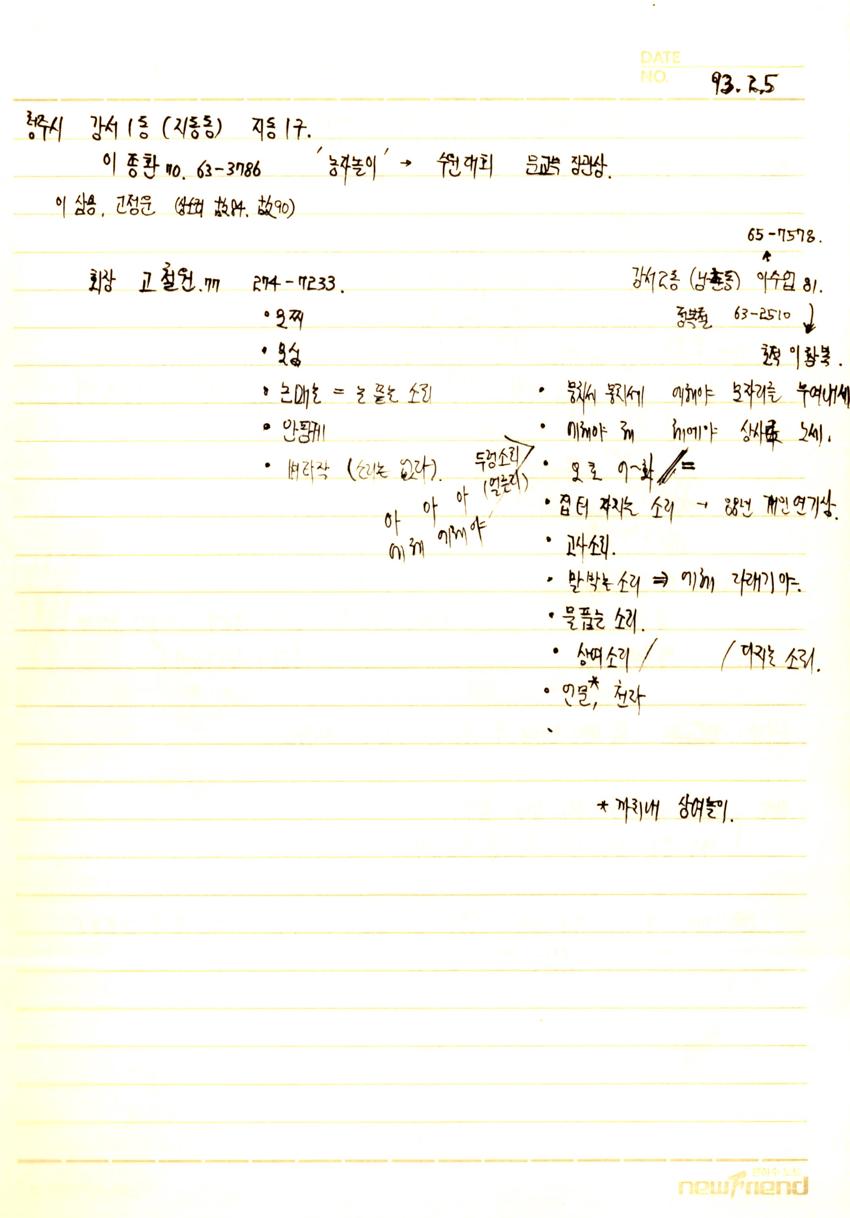 DATE
NO.
93. 2, 5
청주시 강서1동 (지동동) 지동1구.
이종환 70. 63-3786 '농자놀이' → 수원대회 문교부 장관상.
이삼용, 고정운 (상쇠 故84. 故90)
65-7578.
회장 고철원.77 274-7233. 강서2동 (남촌동) 이수업 81.
정북철 63-2510
• 모찌
• 모심
호적 이황복.
• 논매는 = 논 뜯는 소리
• 뭉치세 뭉치세 에헤야 모자리를 뭉여내세
• 안뜸께
• 에헤야 헤 헤에야 상사로 노세.
• 벼타작 (소리는 없다).
두렁소리
(얼른리)
• 오로 이~화
아 아 아
에헤 에헤야
• 집터 다지는 소리 → 88년 개인연기상.
• 고사소리.
• 말박는 소리 ⇒ 에헤 다래기야.
• 물품는 소리.
• 상여소리 / / 다지는 소리.
• 연물*, 천라
•
* 까치내 상여놀이.
newfriend